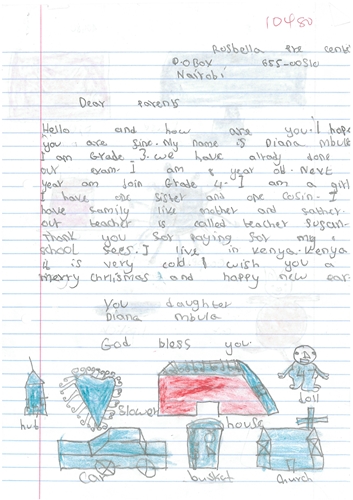 10480
Rosbella pre cente
P.O BOX 655-00510
Nairobi
Dear parents
Hello and how are you. I hope
you are sinc. My name is Diana mbula
I am Grade 3. we have alrdy done
our exam. I am 8 year old. Next
year am join Grade 4. I am a girl
I have one sister and one cosin. I
have samily like mother and sather.
out teacher is called teacher susan.
Thank you sor paying sor my
school sees. I live in kenya. kenya
it is very cold. I wish you a
merry christmas and happy new ear.
You daughter
Diana mbula
God bless you.
hut
slower
house
doll
car
busket
church